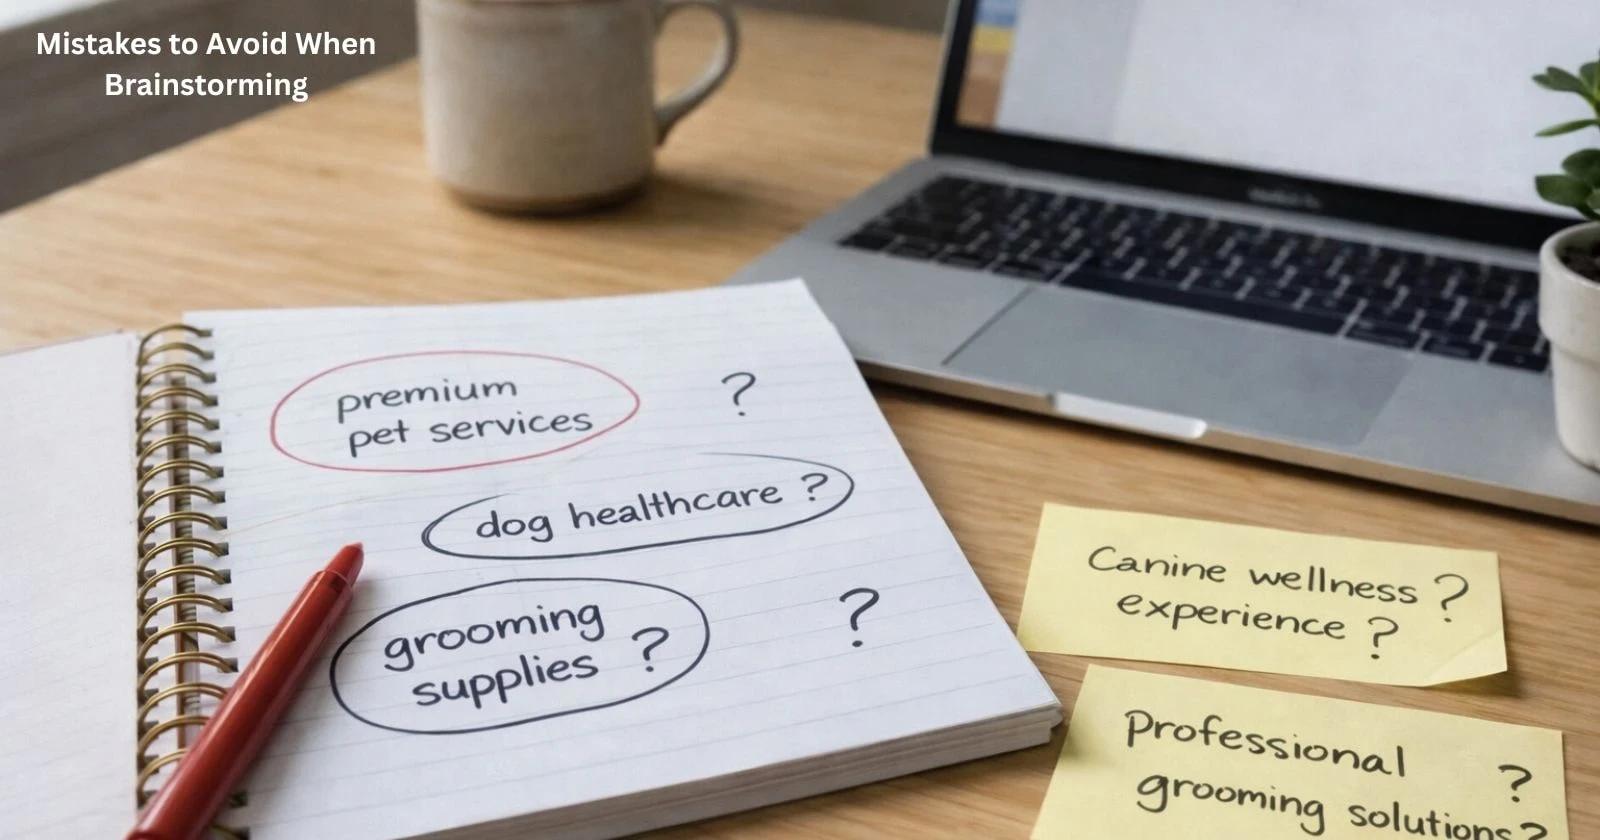 Mistakes to Avoid When
Brainstorming
premium
pet services
?
dog healthcare ?
grooming
supplies ?
?
Canine wellness ?
experience ?
Professional
?
grooming solutions?